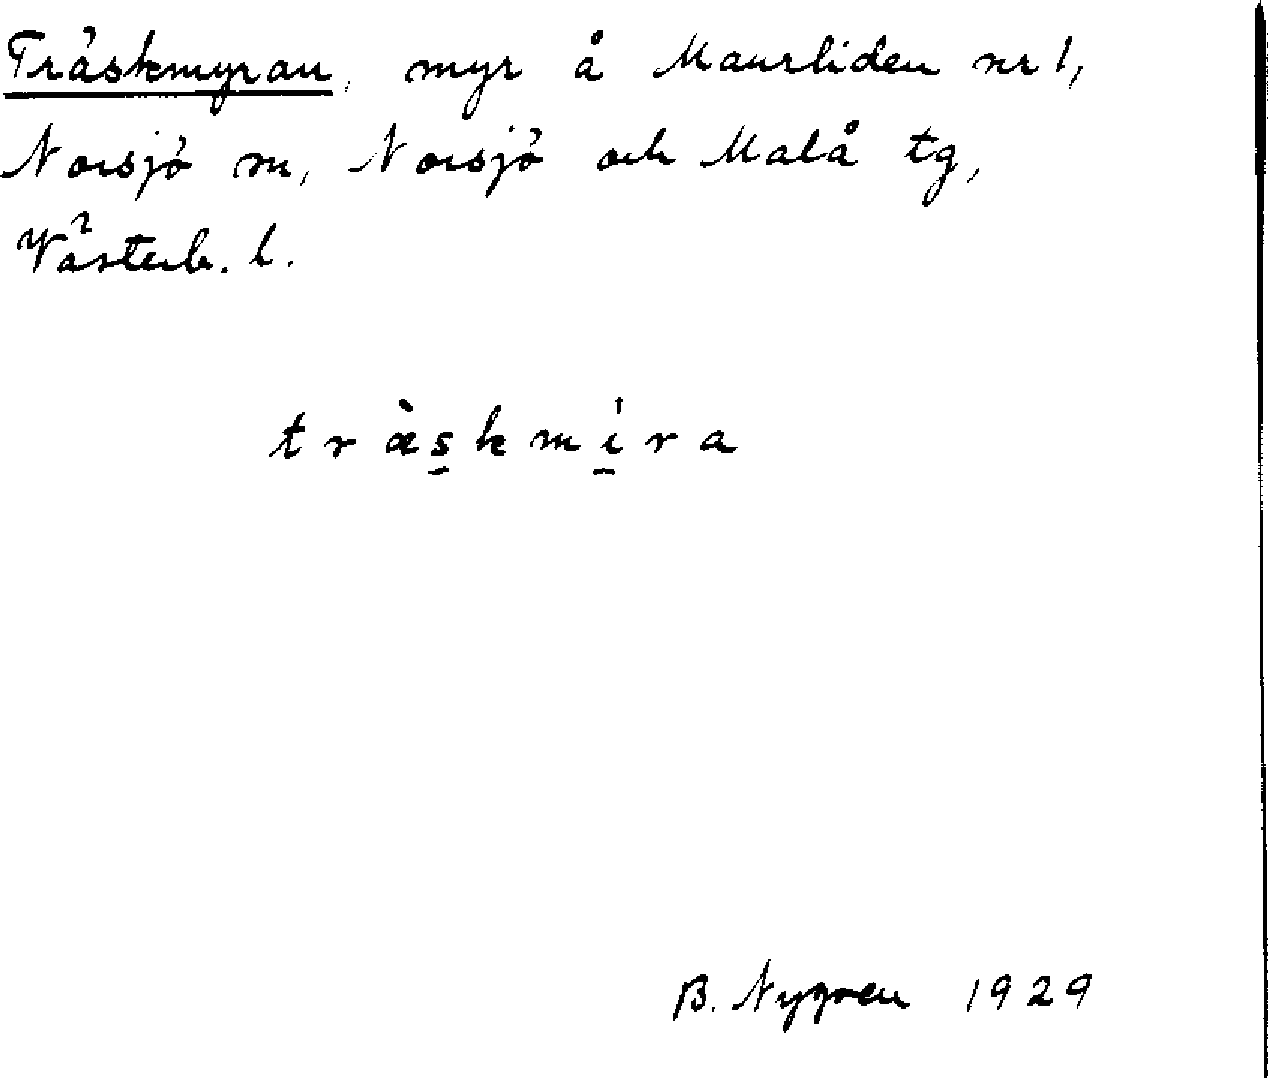 Träskmyran, myr å Maurliden nr 1,
Norsjö sn, Norsjö och Malå tg,
Västerb. l.
tràskmíra
B. Nygren 1929